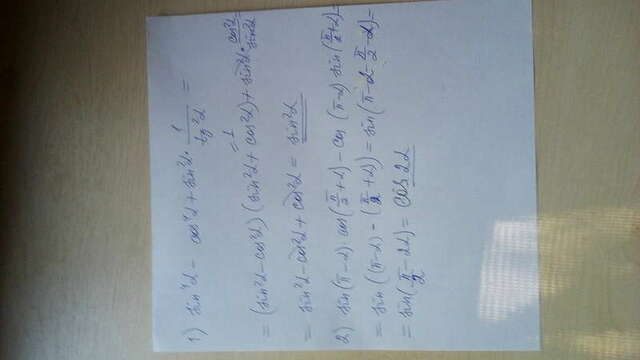 1) sin⁴α − cos⁴α + sin²α · 1/tg²α =
= (sin²α − cos²α) (sin²α + cos²α) + sin²α · cos²α/sin²α
= 1
= sin²α − cos²α + cos²α = sin²α
2) sin(π−α) · cos(π/2+α) − cos (π−α) sin(π/2+α) =
= sin ((π−α) − (π/2+α)) = sin(π−α−π/2−α) =
= sin(π/2 − 2α) = cos 2α